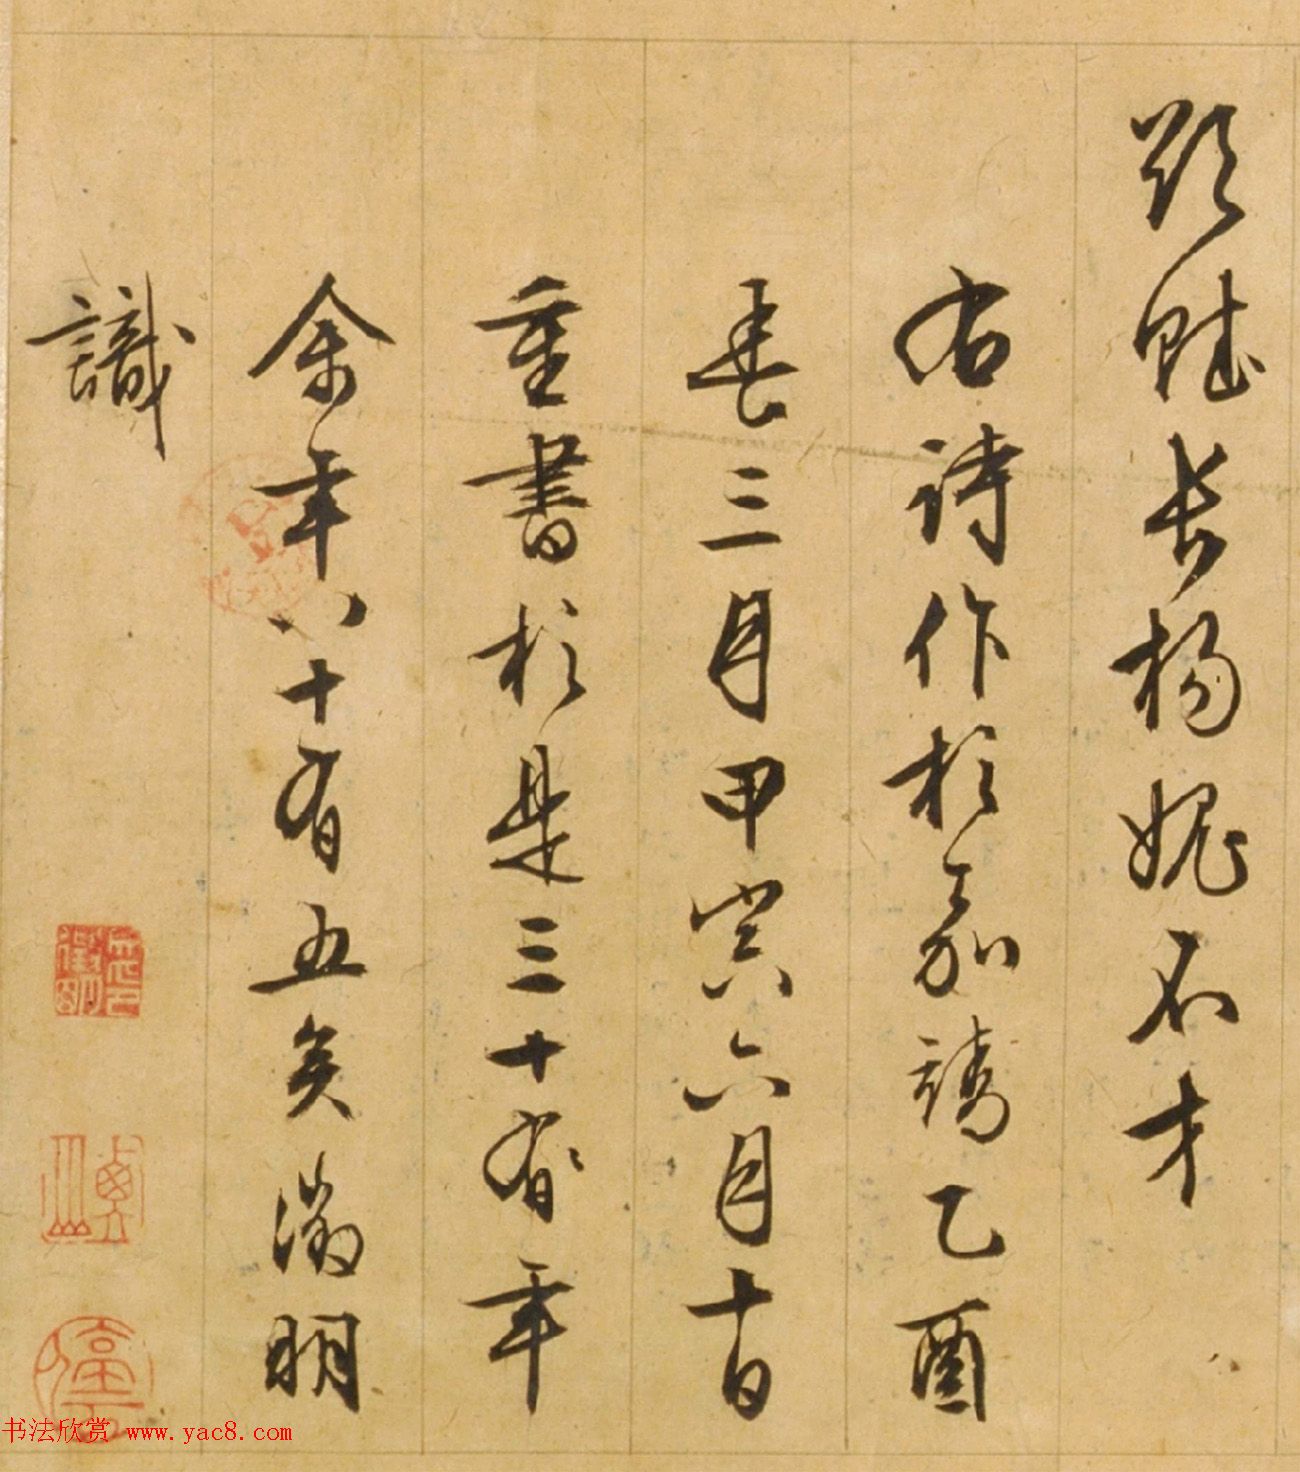 欲賦長楊媿不才
右詩作於嘉靖乙酉
春三月甲寅六月十日
重書於是三十有年
余年八十有五矣徵明
識
书法欣赏 www.yac8.com